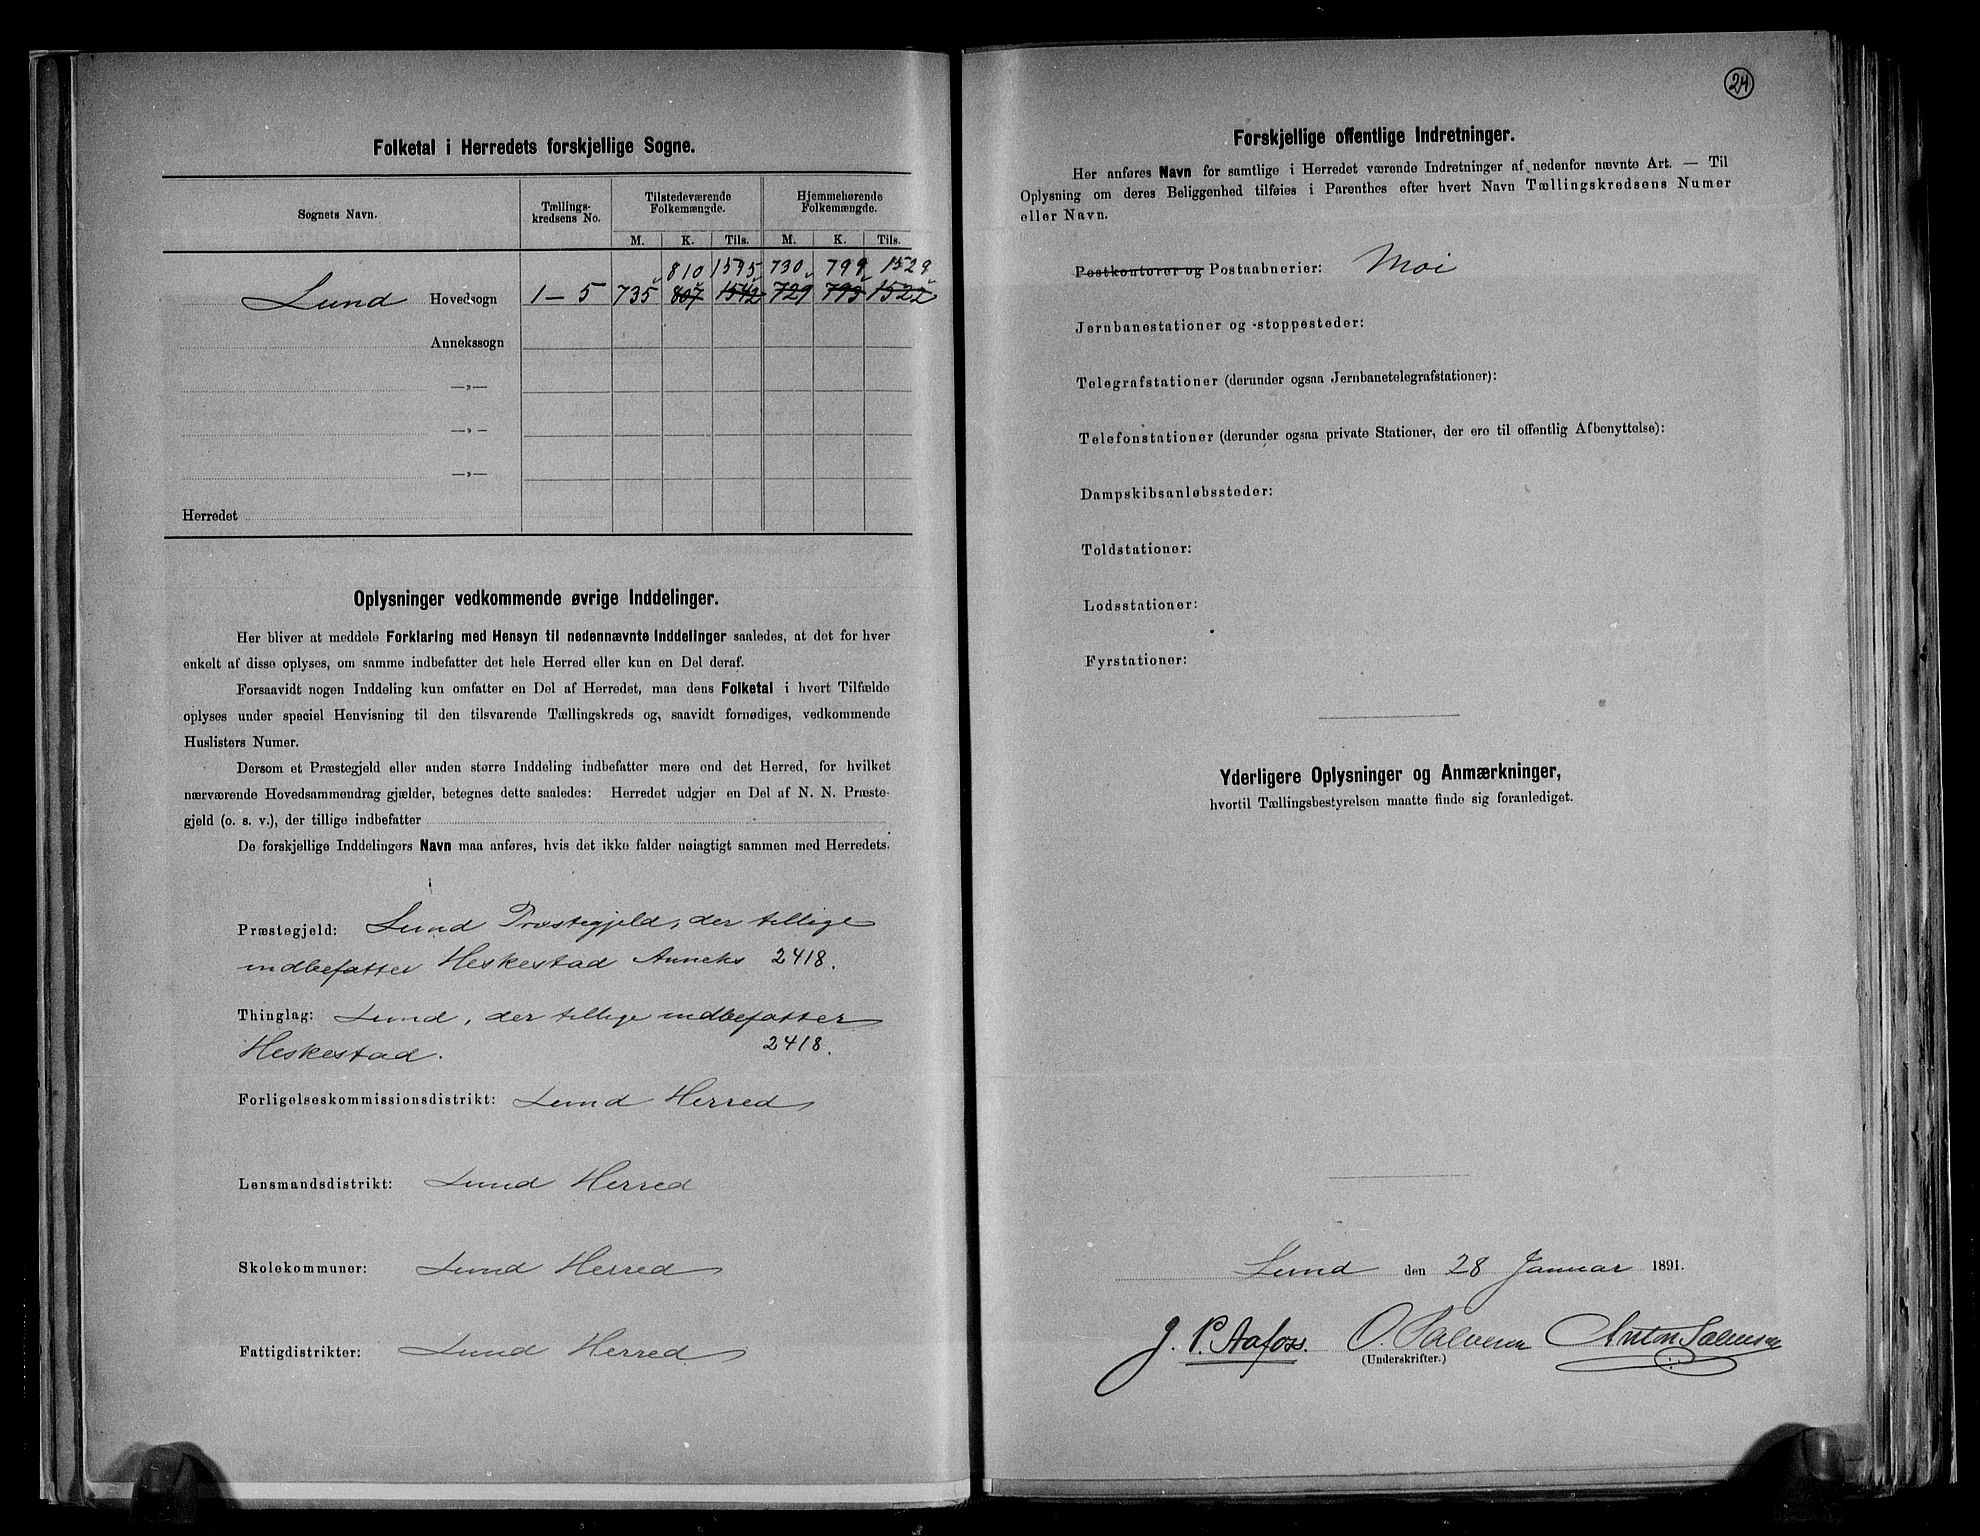 Folketal i Herredets forskjellige Sogne.
Sognets Navn. Tællings-kredsens No. Tilstedeværende Folkemængde. Hjemmehørende Folkemængde.
M. K. Tils. M. K. Tils.
810 1545 730 799 1529
Lund Hovedsogn 1-5 735 807 1542 729 793 1522
Annekssogn
—„—
—„—
—„—
Herredet
Oplysninger vedkommende øvrige Inddelinger.
Her bliver at meddele Forklaring med Hensyn til nedennævnte Inddelinger saaledes, at det for hver
enkelt af disse oplyses, om samme indbefatter det hele Herred eller kun en Del deraf.
Forsaavidt nogen Inddeling kun omfatter en Del af Herredet, maa dens Folketal i hvert Tilfælde
oplyses under speciel Henvisning til den tilsvarende Tællingskreds og, saavidt fornødiges, vedkommende
Huslisters Numer.
Dersom et Præstegjeld eller anden større Inddeling indbefatter mere end det Herred, for hvilket
nærværende Hovedsammendrag gjælder, betegnes dette saaledes: Herredet udgjør en Del af N. N. Præste-
gjeld (o. s. v.), der tillige indbefatter
De forskjellige Inddelingers Navn maa anføres, hvis det ikke falder nøiagtigt sammen med Herredets.
Præstegjeld: Lund Præstegjeld, der tillige
indbefatter Heskestad Anneks 2418.
Thinglag: Lund, der tillige indbefatter
Heskestad. 2418.
Forligelseskommissionsdistrikt: Lund Herred
Lensmandsdistrikt: Lund Herred
Skolekommuner: Lund Herred
Fattigdistrikter: Lund Herred
24
Forskjellige offentlige Indretninger.
Her anføres Navn for samtlige i Herredet værende Indretninger af nedenfor nævnte Art. — Til
Oplysning om deres Beliggenhed tilføies i Parenthes efter hvert Navn Tællingskredsens Numer
eller Navn.
Postkontorer og Postaabnerier: Moi
Jernbanestationer og -stoppesteder:
Telegrafstationer (derunder ogsaa Jernbanetelegrafstationer):
Telefonstationer (derunder ogsaa private Stationer, der ere til offentlig Afbenyttelse):
Dampskibsanløbssteder:
Toldstationer:
Lodsstationer:
Fyrstationer:
Yderligere Oplysninger og Anmærkninger,
hvortil Tællingsbestyrelsen maatte finde sig foranlediget.
Lund den 28 Januar 1891.
J. P. Aafoss. O Salvesen Anton Salvesen
(Underskrifter.)